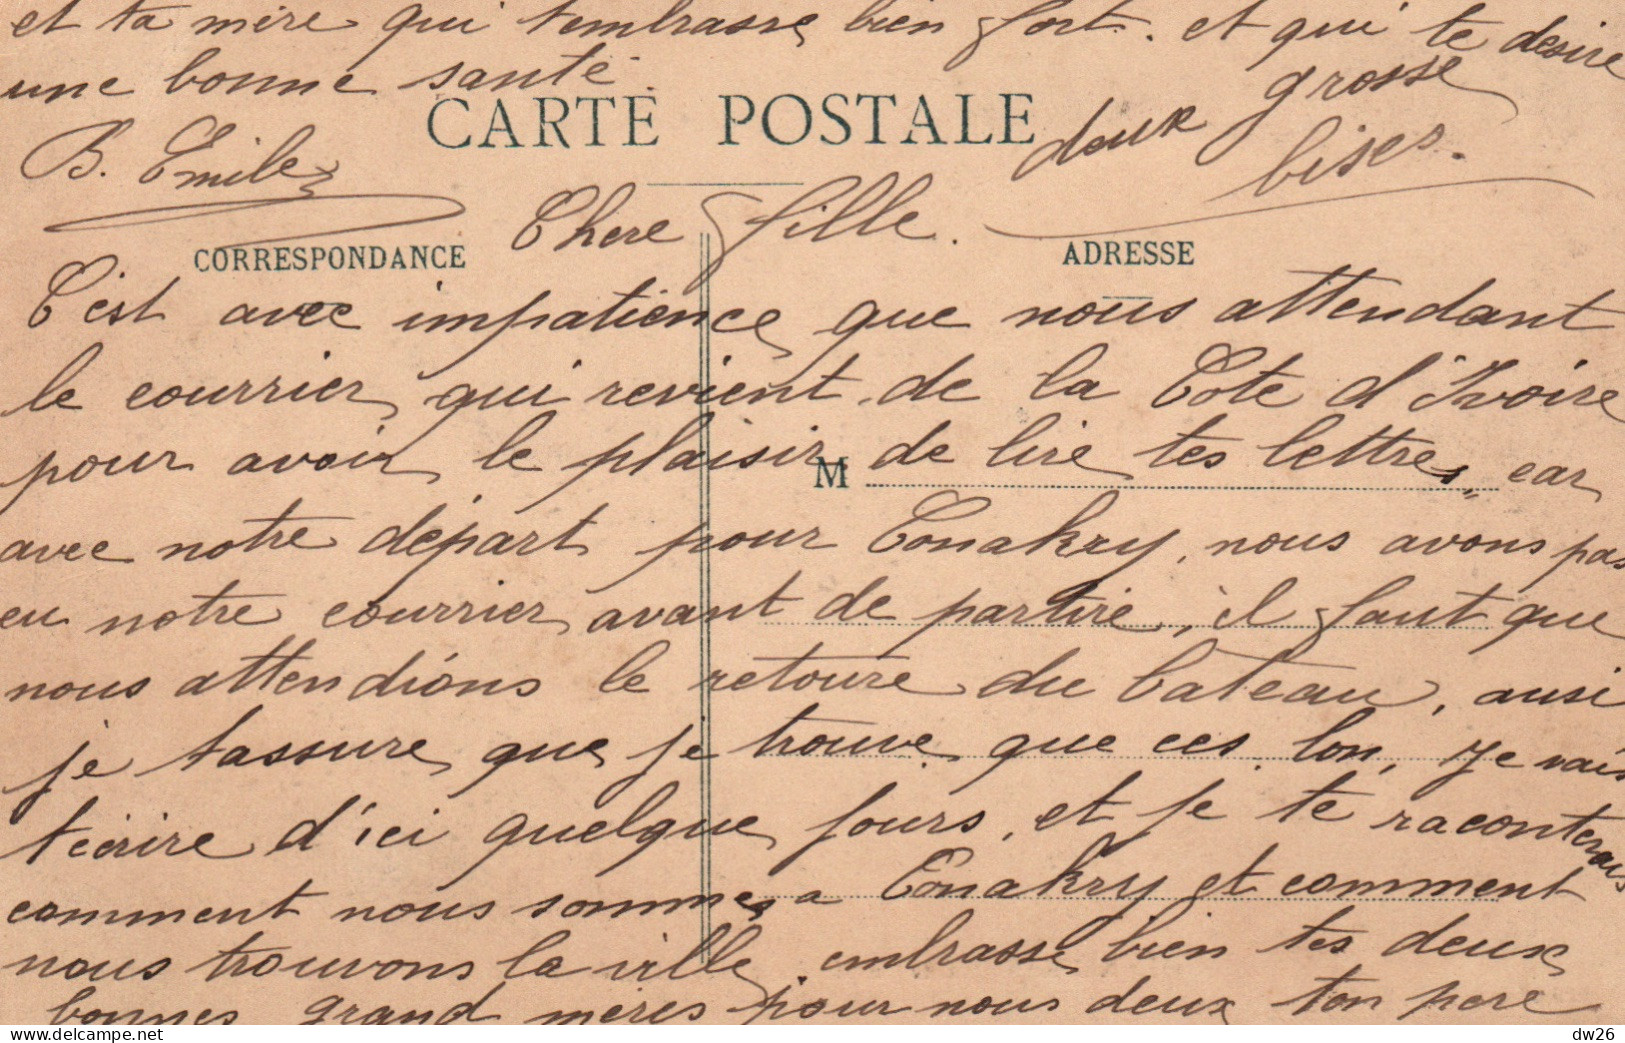 et ta mère qui t'embrasse bien fort. et qui te désire
une bonne santé.
deux grosse
bises.
B. Emile
CARTE POSTALE
CORRESPONDANCE
ADRESSE
Chere fille.
C'est avec impatience que nous attendant
le courrier qui revient de la Cote d'Ivoire
pour avoir le plaisir de lire tes lettres, car
M
avec notre départ pour Conakry, nous avons pas
eu notre courrier avant de partire, il faut que
nous attendions le retoure du bateau, ausi
je tassure que je trouve que ces lon, Je vais
t'ecrire d'ici quelque jours, et je te raconterais
comment nous sommes a Conakry et comment
nous trouvons la ville, embrasse bien tes deux
bonnes grand mères pour nous deux ton pere
dw26